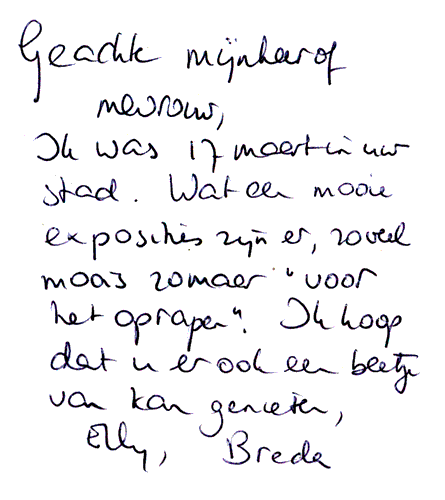 Geachte mijnheer of
mevrouw,
Ik was 17 maart in uw
stad. Wat een mooie
exposities zijn er, zoveel
moois zomaer "voor
het oprapen". Ik hoop
dat u er ook een beetje
van kan genieten,
Elly, Breda